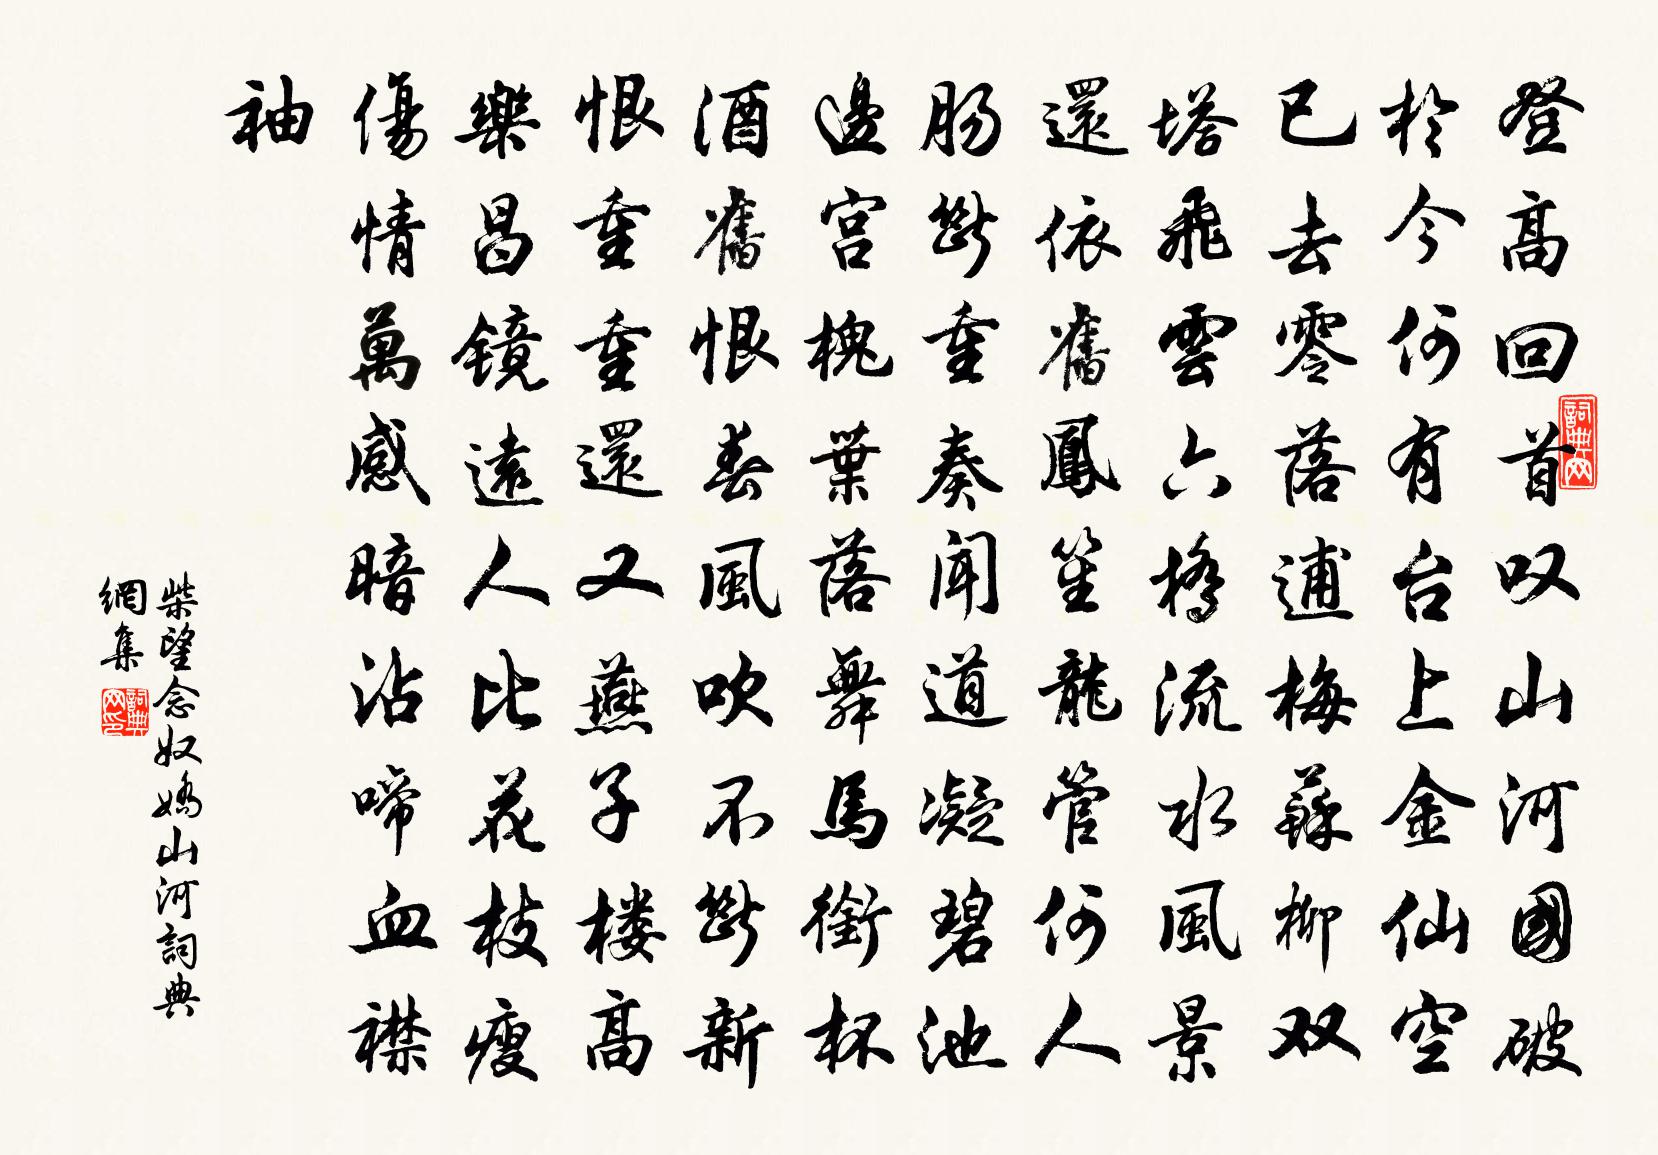 登高回首叹山河國破
於今何有台上金仙空
已去零落逋梅蘇柳双
塔飛雲六橋流水風景
還依舊鳳笙龍管何人
腸斷重奏聞道凝碧池
邊宮槐葉落舞馬銜杯
酒舊恨春風吹不斷新
恨重重還又燕子楼高
樂昌镜遠人比花枝瘦
傷情萬感暗沾啼血襟
袖
柴望念奴嬌山河詞典
網集
詞典网
詞典网印